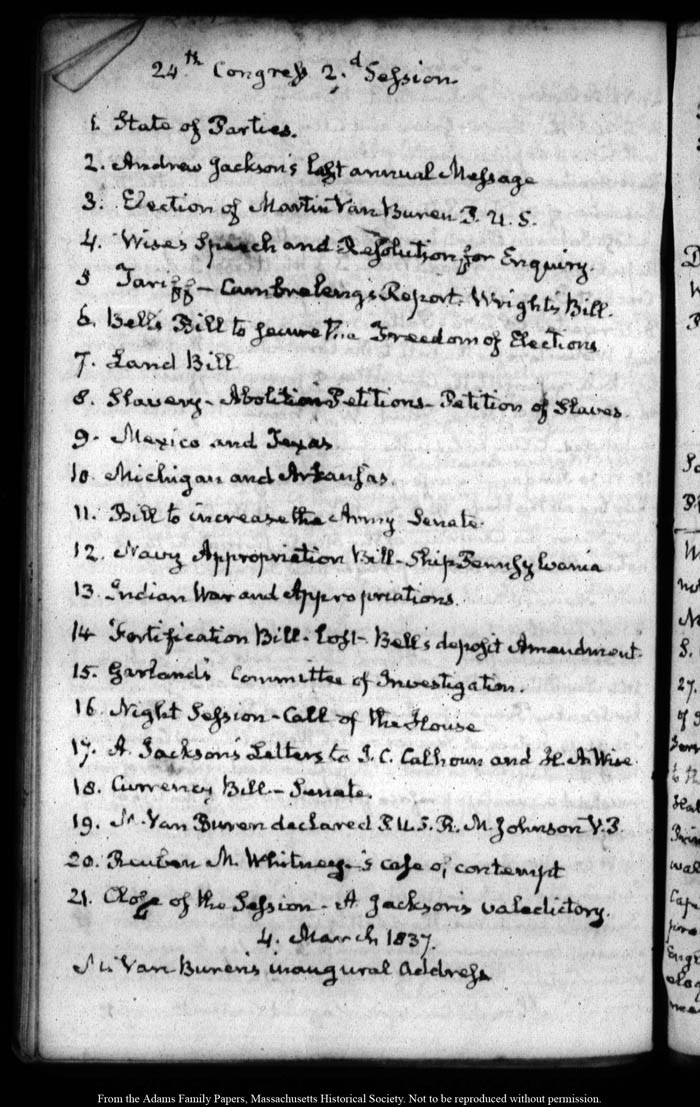 24th Congress 2.d Session
1. State of Parties.
2. Andrew Jackson's last annual Message
3. Election of Martin Van Buren P. U. S.
4. Wise's Speech and Resolution for Enquiry.
5 Tariff — Cambreleng's Report. Wright's Bill.
6. Bell's Bill to secure the Freedom of Elections
7. Land Bill
8. Slavery - Abolition Petitions - Petition of Slaves.
9. Mexico and Texas
10. Michigan and Arkansas.
11. Bill to increase the Army Senate.
12. Navy Appropriation Bill - Ship Pennsylvania
13. Indian War and Appropriations.
14 Fortification Bill - lost - Bell's deposit Amendment.
15. Garland's Committee of Investigation.
16 Night Session - Call of the House
17. A. Jackson's Letters to J. C. Calhoun and H. A. Wise.
18. Currency Bill - Senate.
19. M. Van Buren declared P. U. S. R. M. Johnson V. P.
20. Reuben M. Whitney's case of contempt
21. Close of the Session - A Jackson's valedictory.
4. March 1837.
M. Van Buren's inaugural Address
From the Adams Family Papers, Massachusetts Historical Society. Not to be reproduced without permission.